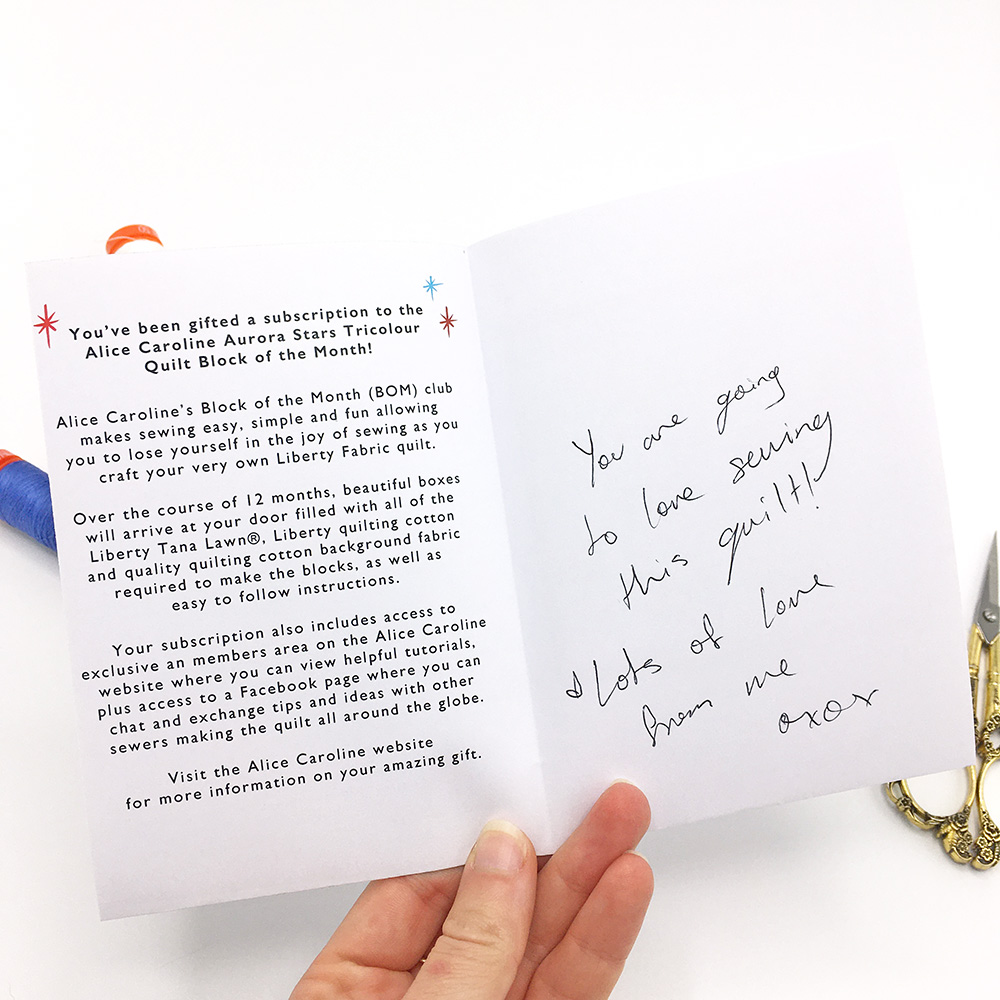 You've been gifted a subscription to the
Alice Caroline Aurora Stars Tricolour
Quilt Block of the Month!
Alice Caroline's Block of the Month (BOM) club
makes sewing easy, simple and fun allowing
you to lose yourself in the joy of sewing as you
craft your very own Liberty Fabric quilt.
Over the course of 12 months, beautiful boxes
will arrive at your door filled with all of the
Liberty Tana Lawn®, Liberty quilting cotton
and quality quilting cotton background fabric
required to make the blocks, as well as
easy to follow instructions.
Your subscription also includes access to
exclusive an members area on the Alice Caroline
website where you can view helpful tutorials,
plus access to a Facebook page where you can
chat and exchange tips and ideas with other
sewers making the quilt all around the globe.
Visit the Alice Caroline website
for more information on your amazing gift.
You are going
to love sewing
this quilt!
Lots of love
from me
oxox